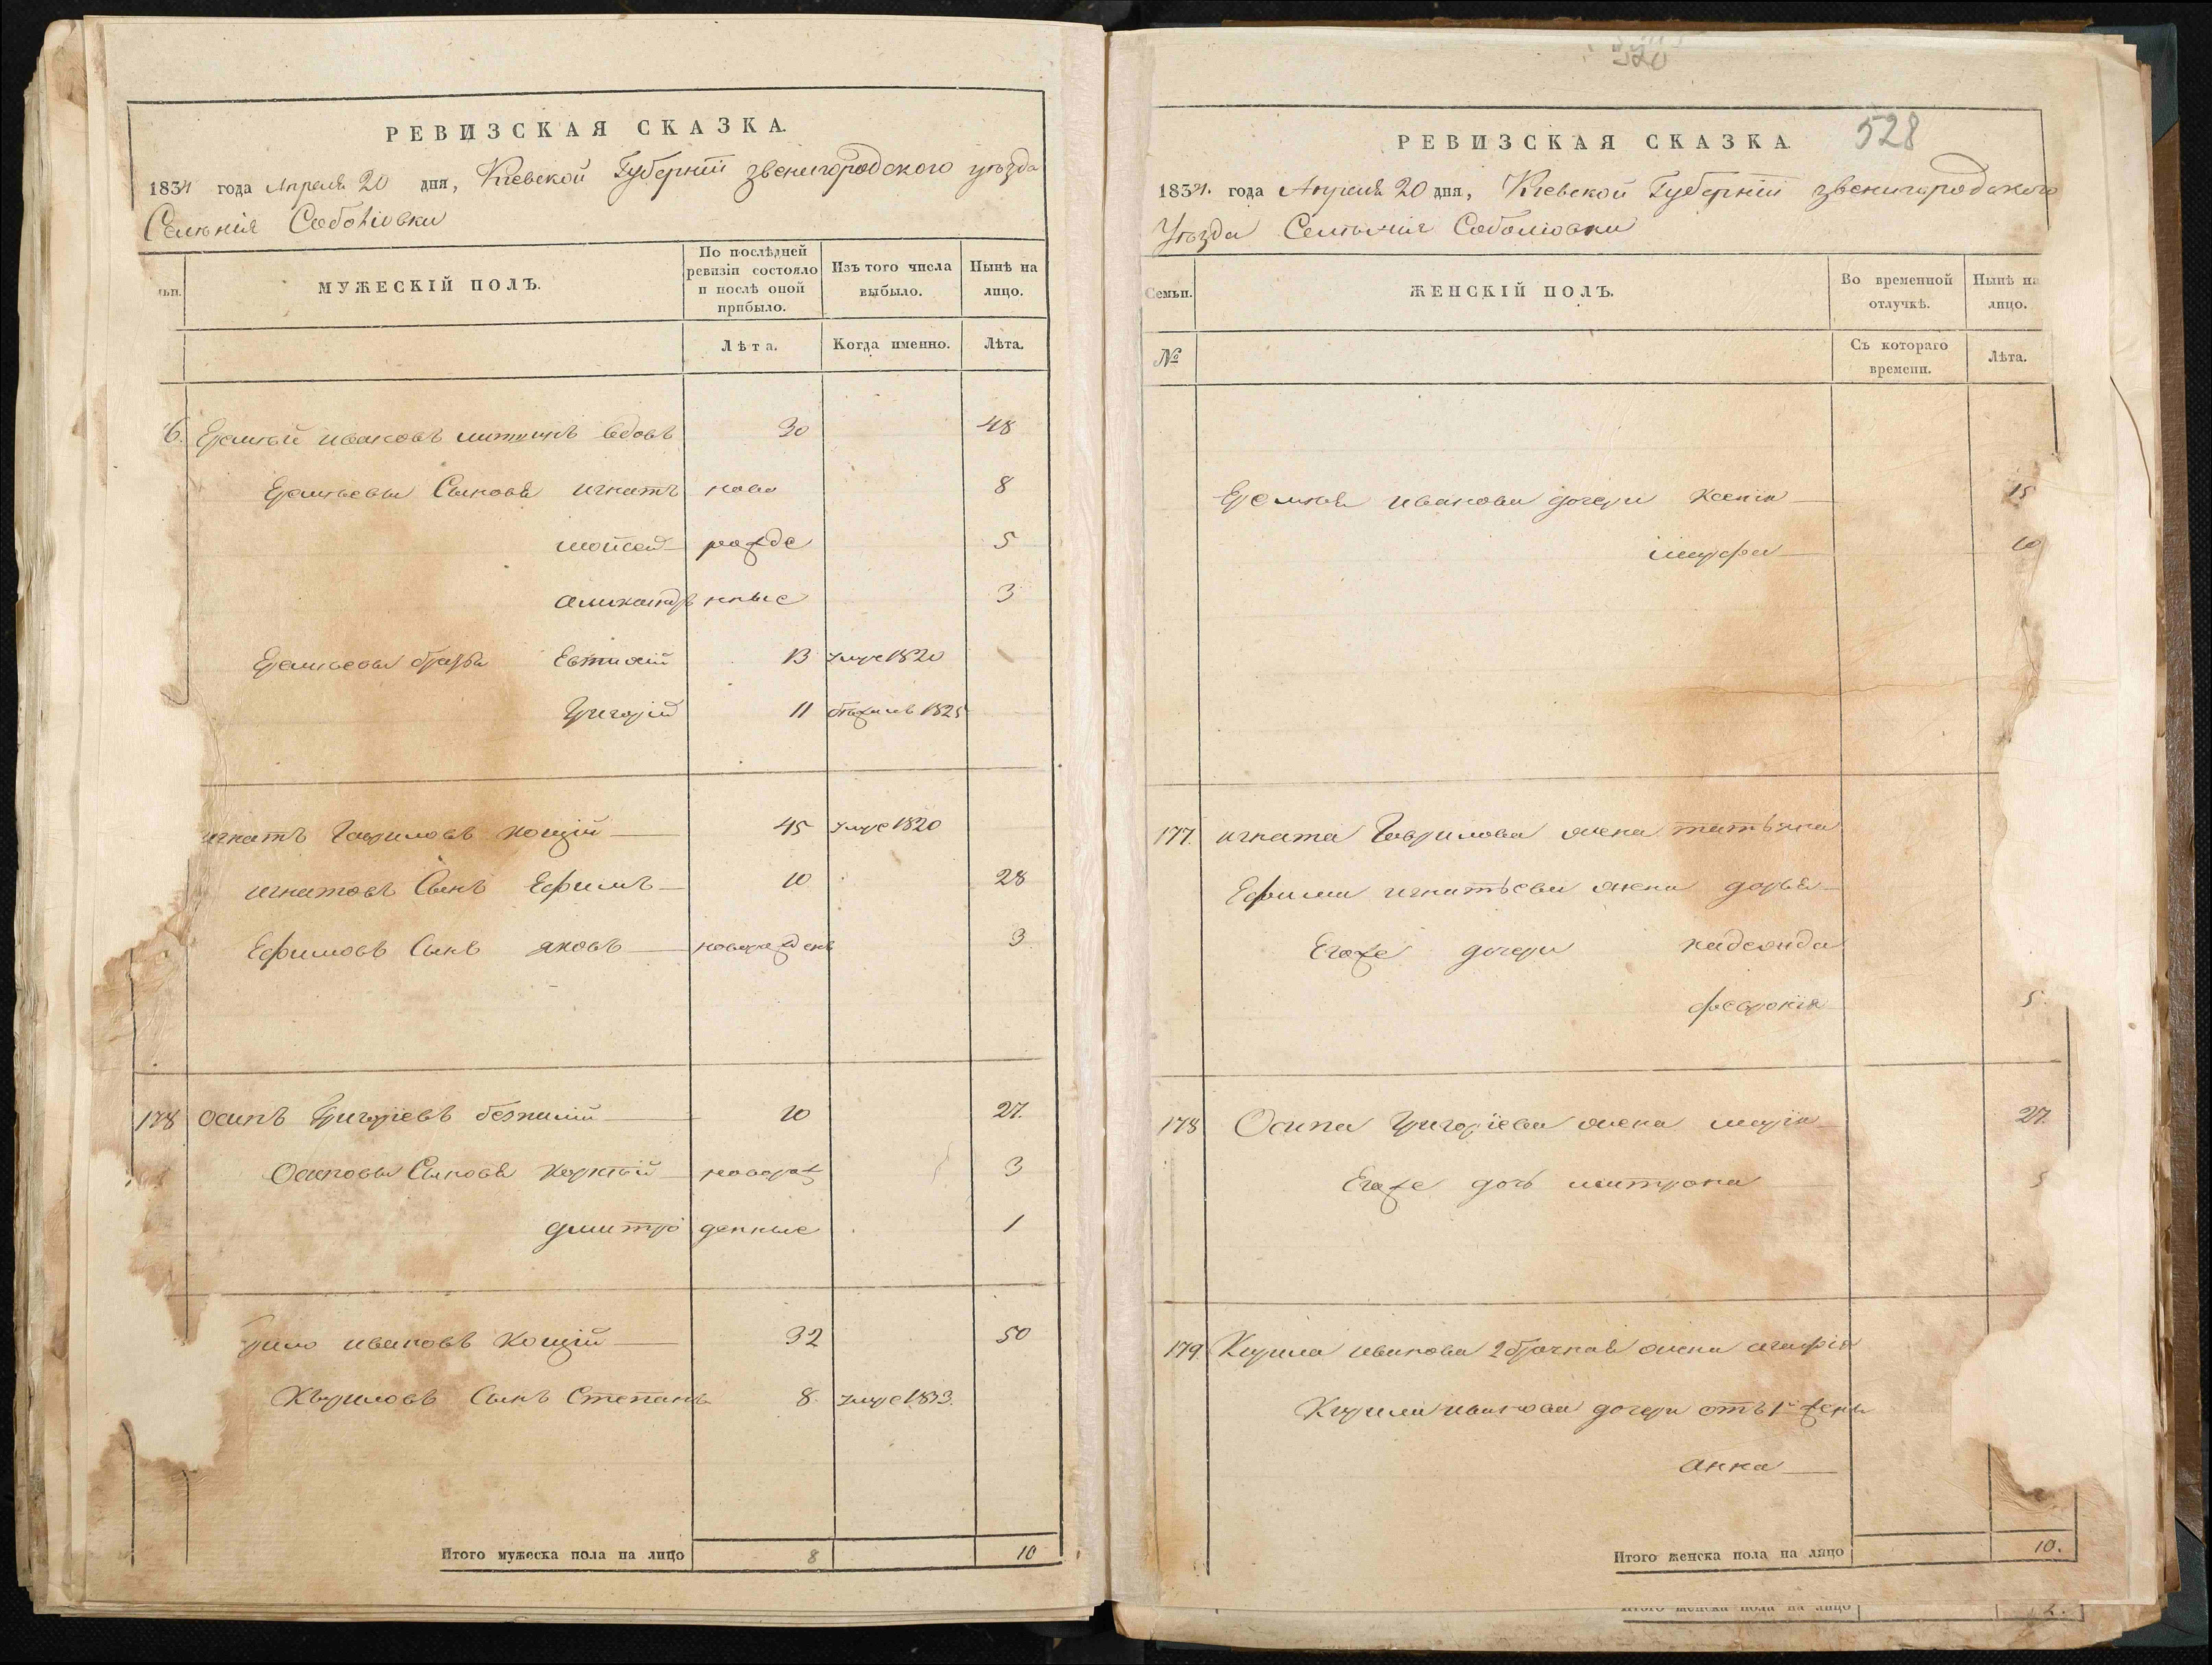 РЕВИЗСКАЯ СКАЗКА.
1834 года Апреля 20 дня, Кіевской Губерніи звенигородского уѣзда
Селенія Соболіовки
МУЖЕСКІЙ ПОЛЪ.
По послѣдней ревизіи состояло и послѣ оной прибыло.
Изъ того числа выбыло.
Нынѣ на лицо.
Лѣта.
Когда именно.
Лѣта.
6. Еремѣй ивановъ вдовъ 30 48
Еремѣевы Сыновья игнатъ ново 8
мойсей рожде 5
александръ нные 3
Еремѣевы братья Евтихій 13 умре 1820
Григорій 11 1825
игнатъ Гавриловъ кощій 45 умре 1820
игнатовъ Сынъ Ефимъ 10 28
Ефимовъ Сынъ яковъ новорожденъ 3
178 осипъ Григоріевъ 10 27.
Осиповы Сыновья корнѣй новорож 3
дмитро денные 1
рило ивановъ Кощій 32 50
Кѵриловъ Сынъ Степанъ 8. умре 1833.
Итого мужеска пола на лицо 8 10
528
РЕВИЗСКАЯ СКАЗКА.
1834. года Апреля 20 дня, Кіевской Губерніи звенигородского
Уѣзда Селенія Соболіовки
Семьи.
ЖЕНСКІЙ ПОЛЪ.
Во временной отлучкѣ.
Нынѣ на лицо.
№
Съ котораго времени.
Лѣта.
Еремѣя иванова дочери Ксенія 15
марфа 10
177. игната Гаврилова жена татьяна
Ефима игнатьева жена дарья
Егоже дочери надежда
февронія 5.
178 Осипа Григоріева жена марія 27.
Егоже дочь матрона
179. Кирила иванова 2 брачная жена агафія
Кирила иванова дочери отъ 1й жены
анна
Итого женска пола на лицо 10.
Итого женска пола на лицо 2.